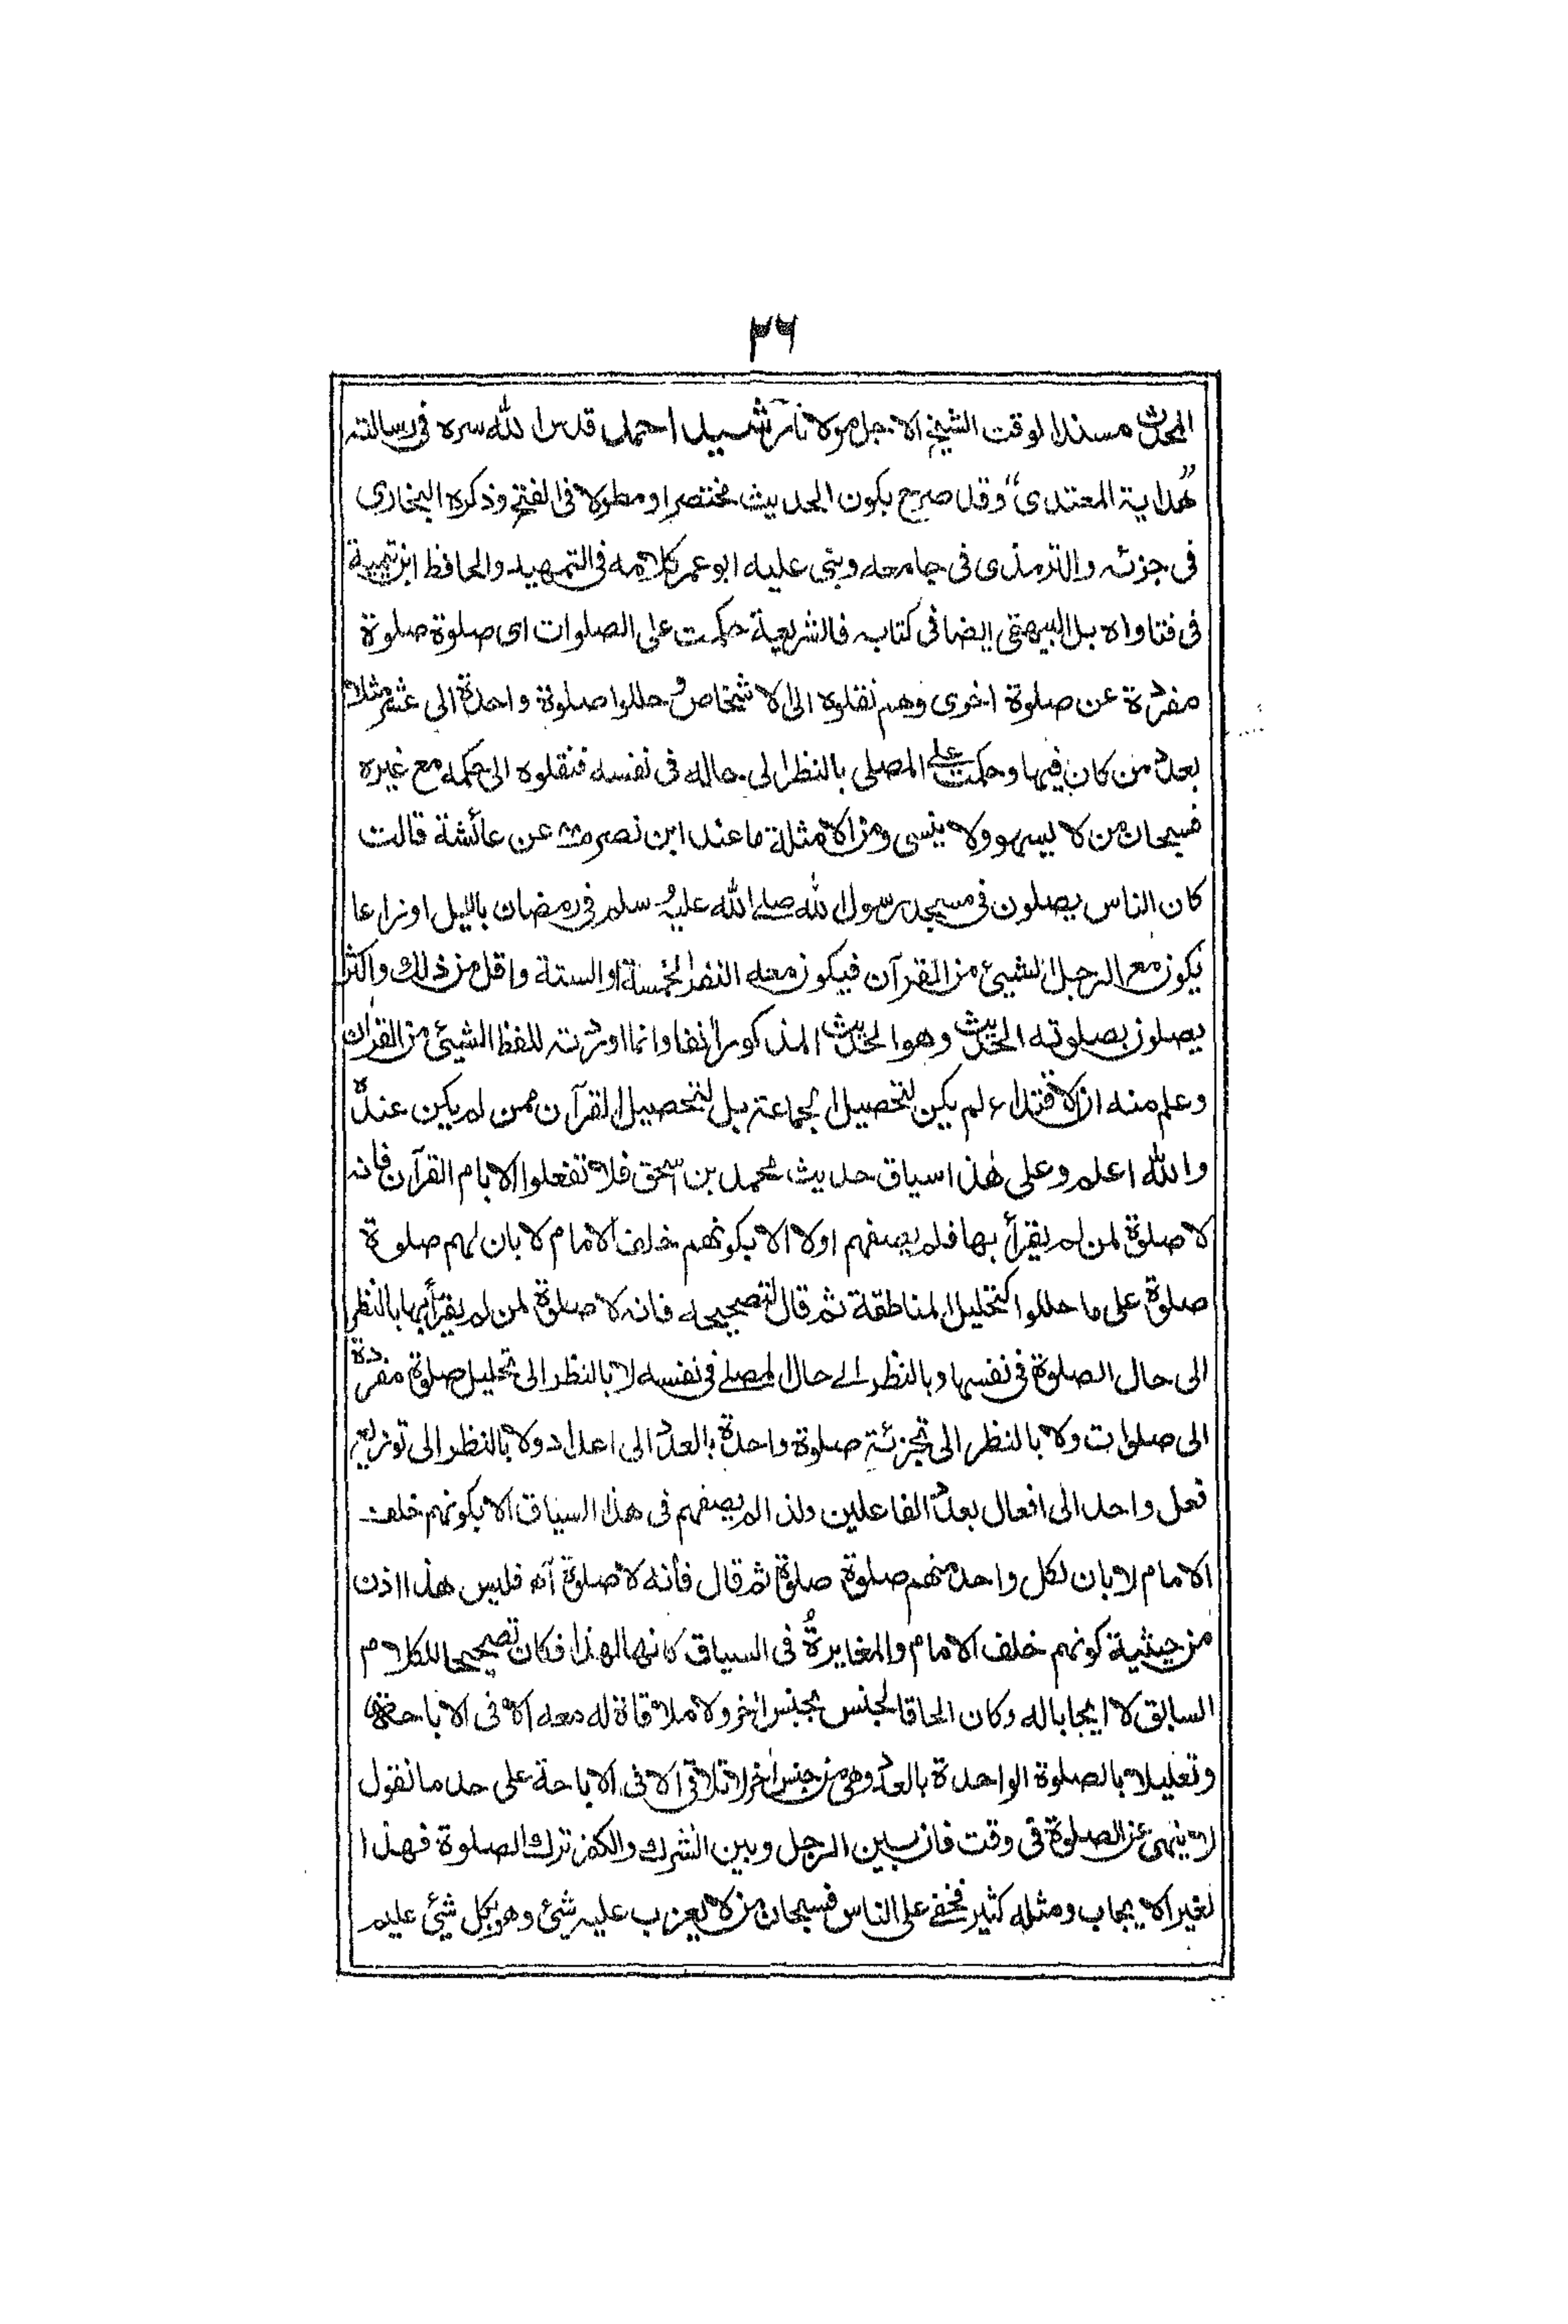 ٣٦
المحدث مسند الوقت الشيخ الاجل مولانا رشيد احمد قدس الله سره فى رسالته
"هداية المعتدى" وقد صرح بكون الحديث مختصرا ومطولا فى الفتح وذكره البخارى
فى جزئه والترمذى فى جامعه وبنى عليه ابو عمر كلامه فى التمهيد والحافظ ابن تيمية
فى فتاواه بل البيهقى ايضا فى كتابه فالشريعة حكمت على الصلوات اى صلوة صلوة
مفردة عن صلوة اخرى وهم نقلوه الى الاشخاص وحللوا صلوة واحدة الى عشر مثلا
بعدد من كان فيها وحكمت على المصلى بالنظر الى حاله فى نفسه فنقلوه الى حكمه مع غيره
فسبحان من لا يسهو ولا ينسى ومن الامثلة ما عند ابن نصر عن عائشة قالت
كان الناس يصلون فى مسجد رسول الله صلے الله عليه وسلم فى رمضان بالليل اوزاعا
يكون مع الرجل الشيئ من القرآن فيكون معه النفر الخمسة او الستة واقل من ذلك واكثر
يصلون بصلوته الحديث وهو الحديث المذكور انفا وانما اوردته للفظ الشيئ من القرآن
وعلم منه ان الاقتداء لم يكن لتحصيل الجماعة بل لتحصيل القرآن ممن لم يكن عنده
والله اعلم وعلى هذا سياق حديث محمد بن اسحق فلا تفعلوا الا بام القرآن فانه
لا صلوة لمن لم يقرأ بها فلم يصفهم اولا الا بكونهم خلف الامام لا بان لهم صلوة
صلوة على ما حللوا كتحليل المناطقة ثم قال لتصحيحه فانه لا صلوة لمن لم يقرأ بها بالنظر
الى حال الصلوة فى نفسها وبالنظر الے حال المصلے فى نفسه لا بالنظر الى تحليل صلوة مفردة
الى صلوات ولا بالنظر الى تجزئة صلوة واحدة بالعدد الى اعداد ولا بالنظر الى توزيع
فعل واحد الى افعال بعدد الفاعلين ولذا لم يصفهم فى هذا السياق الا بكونهم خلف
الامام لا بان لكل واحد منهم صلوة صلوة ثم قال فانه لا صلوة آه فليس هذا اذن
من حيثية كونهم خلف الامام والمغايرة فى السياق كانها لهذا فكان تصحيحا للكلام
السابق لا ايجابا له وكان الحاقا لجنس بجنس اخر ولا ملاقاة له معه الا فى الاباحة
وتعليلا بالصلوة الواحدة بالعدد وهى من جنس اخر لا تلاقى الا فى الاباحة على حد ما نقول
لا ينهى عن الصلوة فى وقت فان بين الرجل وبين الشرك والكفر ترك الصلوة فهذا
لغير الايجاب ومثله كثير فخفے على الناس فسبحان من لا يعزب عليه شئ وهو بكل شئ عليم